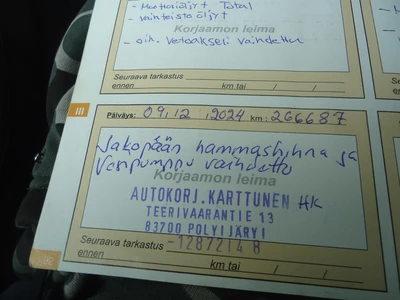 - Moottoriöljyt Total
- vaihteistoöljyt
Korjaamon leima
- oik. vetoakseli vaihdettu
Seuraava tarkastus
ennen km tai / /
III
Päiväys: 09/12 /2024 km: 266687
Jakopään hammashihna ja
Vesipumppu vaihdettu
Korjaamon leima
AUTOKORJ. KARTTUNEN HK
TEERIVAARANTIE 13
83700 POLVIJÄRVI
Seuraava tarkastus -1287214 8
ennen km tai / /